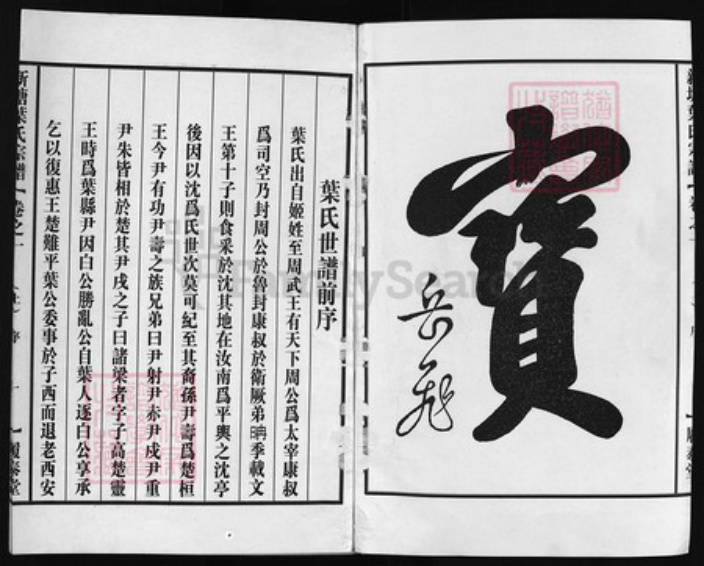 寶
岳飛
葉氏世譜前序
葉氏出自姬姓至周武王有天下周公爲太宰康叔
爲司空乃封周公於魯封康叔於衛厥弟聃季載文
王第十子則食采於沈其地在汝南爲平輿之沈亭
後因以沈爲氏世次莫可紀至其裔孫尹壽爲楚桓
王今尹有功尹壽之族兄弟曰尹射尹赤尹戍尹重
尹朱皆相於楚其尹戍之子曰諸梁者字子高楚靈
王時爲葉縣尹因白公勝亂公自葉人逐白公享承
乞以復惠王楚難平葉公委事於子西而退老西安
新塘葉氏宗譜【卷之一
（上）序
一
】履泰堂
FamilySearch